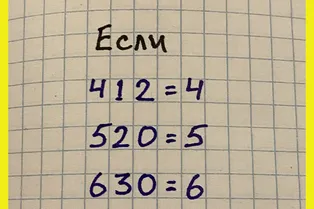 Если
412=4
520=5
630=6